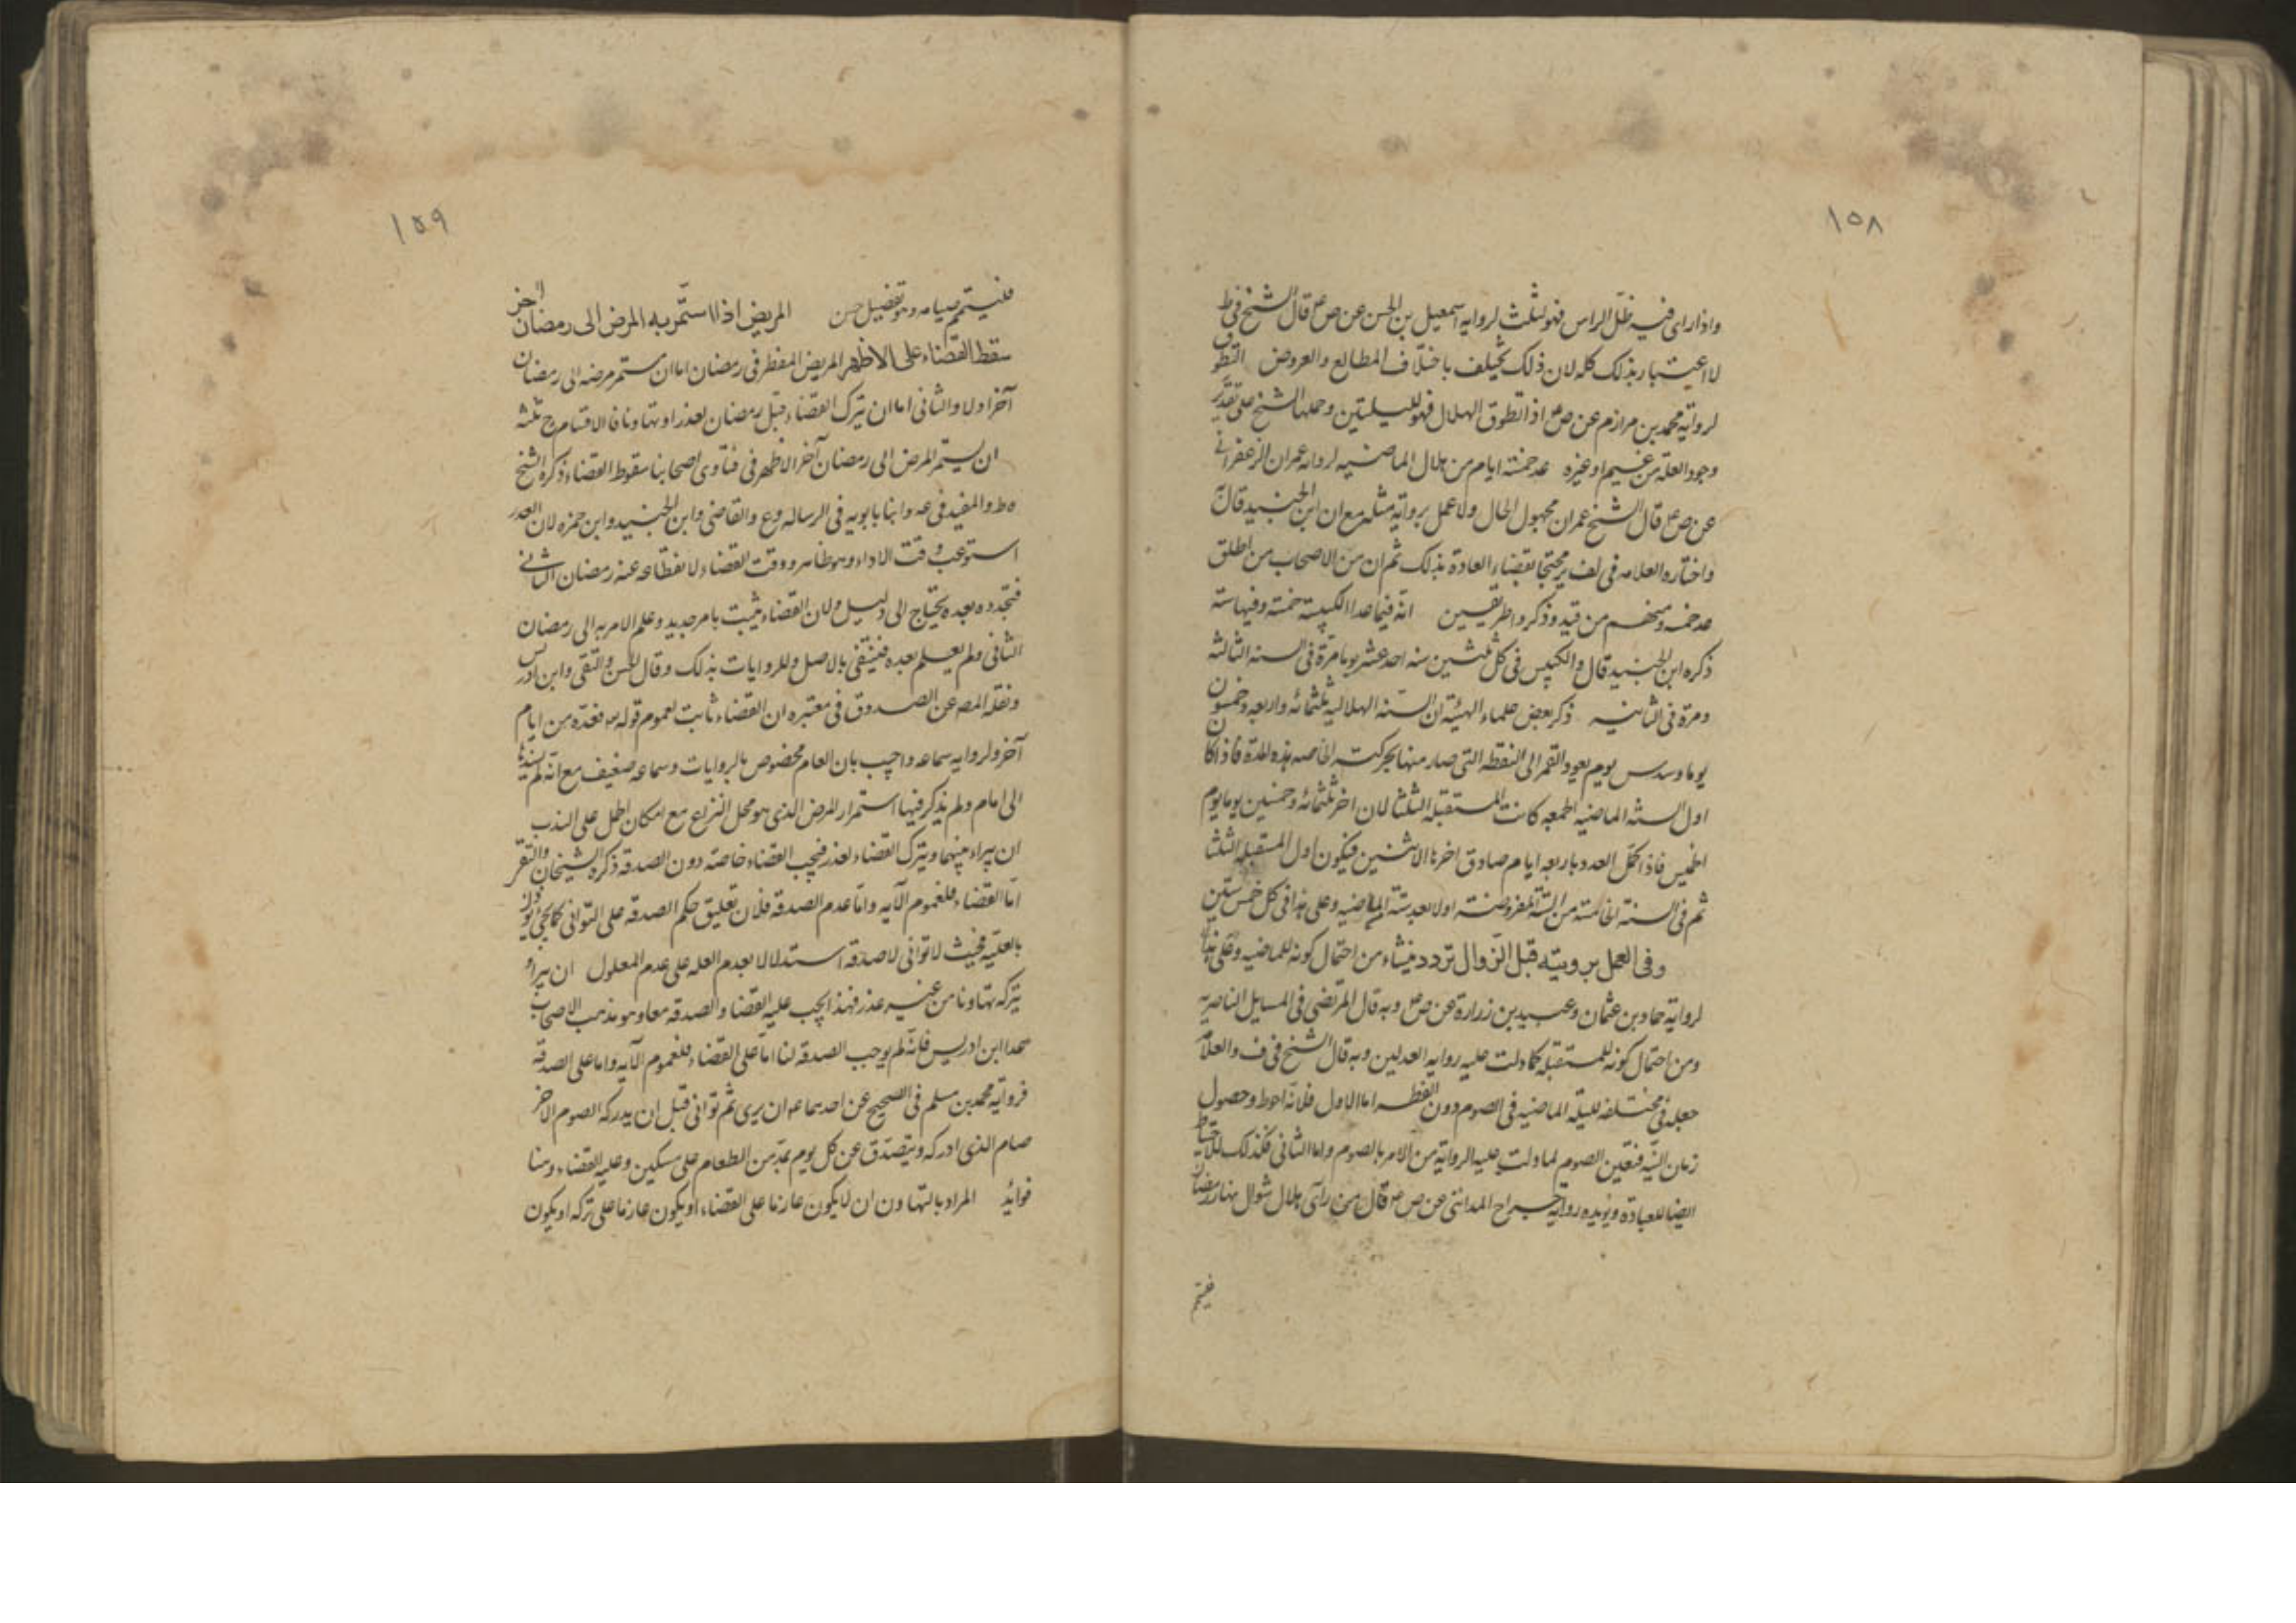 ١٥٨
واذا راى فيه ظل الراس فهو لثلث لرواية اسمعيل بن الحسن عن ص ع قال الشيخ في ط
لا اعتبار بذلك كله لان ذلك يختلف باختلاف المطالع والعروض التطوق
لرواية محمد بن مرازم عن ص ع اذا تطوق الهلال فهو لليلتين وحملها الشيخ على تقدير
وجود العلة من غيم او غيره عد خمسة ايام من هلال الماضيه لروايه عمران الزعفراني
عن ص ع قال الشيخ عمران مجهول الحال ولا عمل برواية مثله مع ان ابن الجنيد قال به
واختاره العلامه في لف محتجا بقضاء العادة بذلك ثم ان من الاصحاب من اطلق
عد خمسه ومنهم من قيد وذكروا طريقين انه فيما عدا الكبيسة خمسة وفيها ستة
ذكره ابن الجنيد قال والكبيس في كل ثلثين سنه احد عشر يوما مرة في السنه الثالثه
ومرة في الثانيه ذكر بعض علماء الهيئة ان السنه الهلاليه ثلثمائه واربعه وخمسون
يوما وسدس يوم يعود القمر الى النقطه التي صار منها بحركته الخاصه هذه المدة فاذا كان
اول السنه الماضيه الجمعه كانت المستقبله الثلثا لان اخر ثلثمائه وخمسين يوما يوم
الخميس فاذا كمل العدد باربعه ايام صادق اخرها الاثنين فيكون اول المستقبله الثلثا
ثم في السنة الخامسة من السنة المفروضة اولا بعد ستة الماضيه وعلى هذا في كل خمس سنين
وفي العمل برويته قبل الزوال تردد ينشاء من احتمال كونه للماضيه
لرواية حماد بن عثمان وعبيد بن زرارة عن ص ع وبه قال المرتضى في المسايل الناصريه
ومن احتمال كونه للمستقبله كما دلت عليه روايه العدلين وبه قال الشيخ في ف والعلامه
جعله في مختلفه لليله الماضيه في الصوم دون الفطر اما الاول فلانه احوط وحصول
زمان النيه فتعين الصوم لما دلت عليه الرواية من الامر بالصوم واما الثاني فكذلك للاحتياط
ايضا للعبادة ويويده رواية جراح المدائني عن ص ع قال من راى هلال شوال بنهار رمضان
فليتم
١٥٩
فليتم صيامه وهو تفصيل حسن المريض اذا استمر به المرض الى رمضان اخر
سقط القضاء على الاظهر المريض المفطر في رمضان اما ان يستمر مرضه الى رمضان
آخر اولا والثاني اما ان يترك القضاء قبل رمضان لعذر او تهاونا فالاقسام ح ثلثه
ان يستمر المرض الى رمضان آخر الاظهر في فتاوى اصحابنا سقوط القضاء ذكره الشيخ
ه ط والمفيد في عه وابنا بابويه في الرساله وع والقاضي وابن الجنيد وابن حمزه لان العذر
استوعب وقت الاداء وهو ظاهر ووقت القضاء لانقطاعه عند رمضان الثاني
فتجدده بعده يحتاج الى دليل ولان القضاء يثبت بامر جديد وعلم الامر به الى رمضان
الثاني ولم يعلم بعده فينتفى بالاصل وللروايات بذلك وقال الحسن والتقى وابن ادريس
ونقله المص عن الصدوق في معتبره ان القضاء ثابت لعموم قوله تع فعدة من ايام
آخر ولروايه سماعه واجيب بان العام مخصوص بالروايات وسماعه ضعيف مع انه لم يسندها
الى امام ولم يذكر فيها استمرار المرض الذي هو محل النزاع مع امكان الحمل على الندب
ان يبراء بينهما ويترك القضاء لعذر فيجب القضاء خاصه دون الصدقه ذكره الشيخان
اما القضاء فلعموم الآيه واما عدم الصدقه فلان تعليق حكم الصدقه على التوانى
بالعليه فحيث لا توانى لا صدقه استدلالا بعدم العله على عدم المعلول ان يبرأ و
يتركه تهاونا من غير عذر فهذا يجب عليه القضا والصدقه معا وهو مذهب الاصحاب
عدا ابن ادريس فانه لم يوجب الصدقه لنا اما على القضاء فلعموم الآيه واما على الصدقة
فرواية محمد بن مسلم في الصحيح عن احدهما ع ان برى ثم توانى قبل ان يدركه الصوم الاخر
صام الذي ادركه ويتصدق عن كل يوم بمد من الطعام على مسكين وعليه القضاء وهنا
فوائد المراد بالتهاون ان لا يكون عازما على القضاء او يكون عازما على تركه او يكون